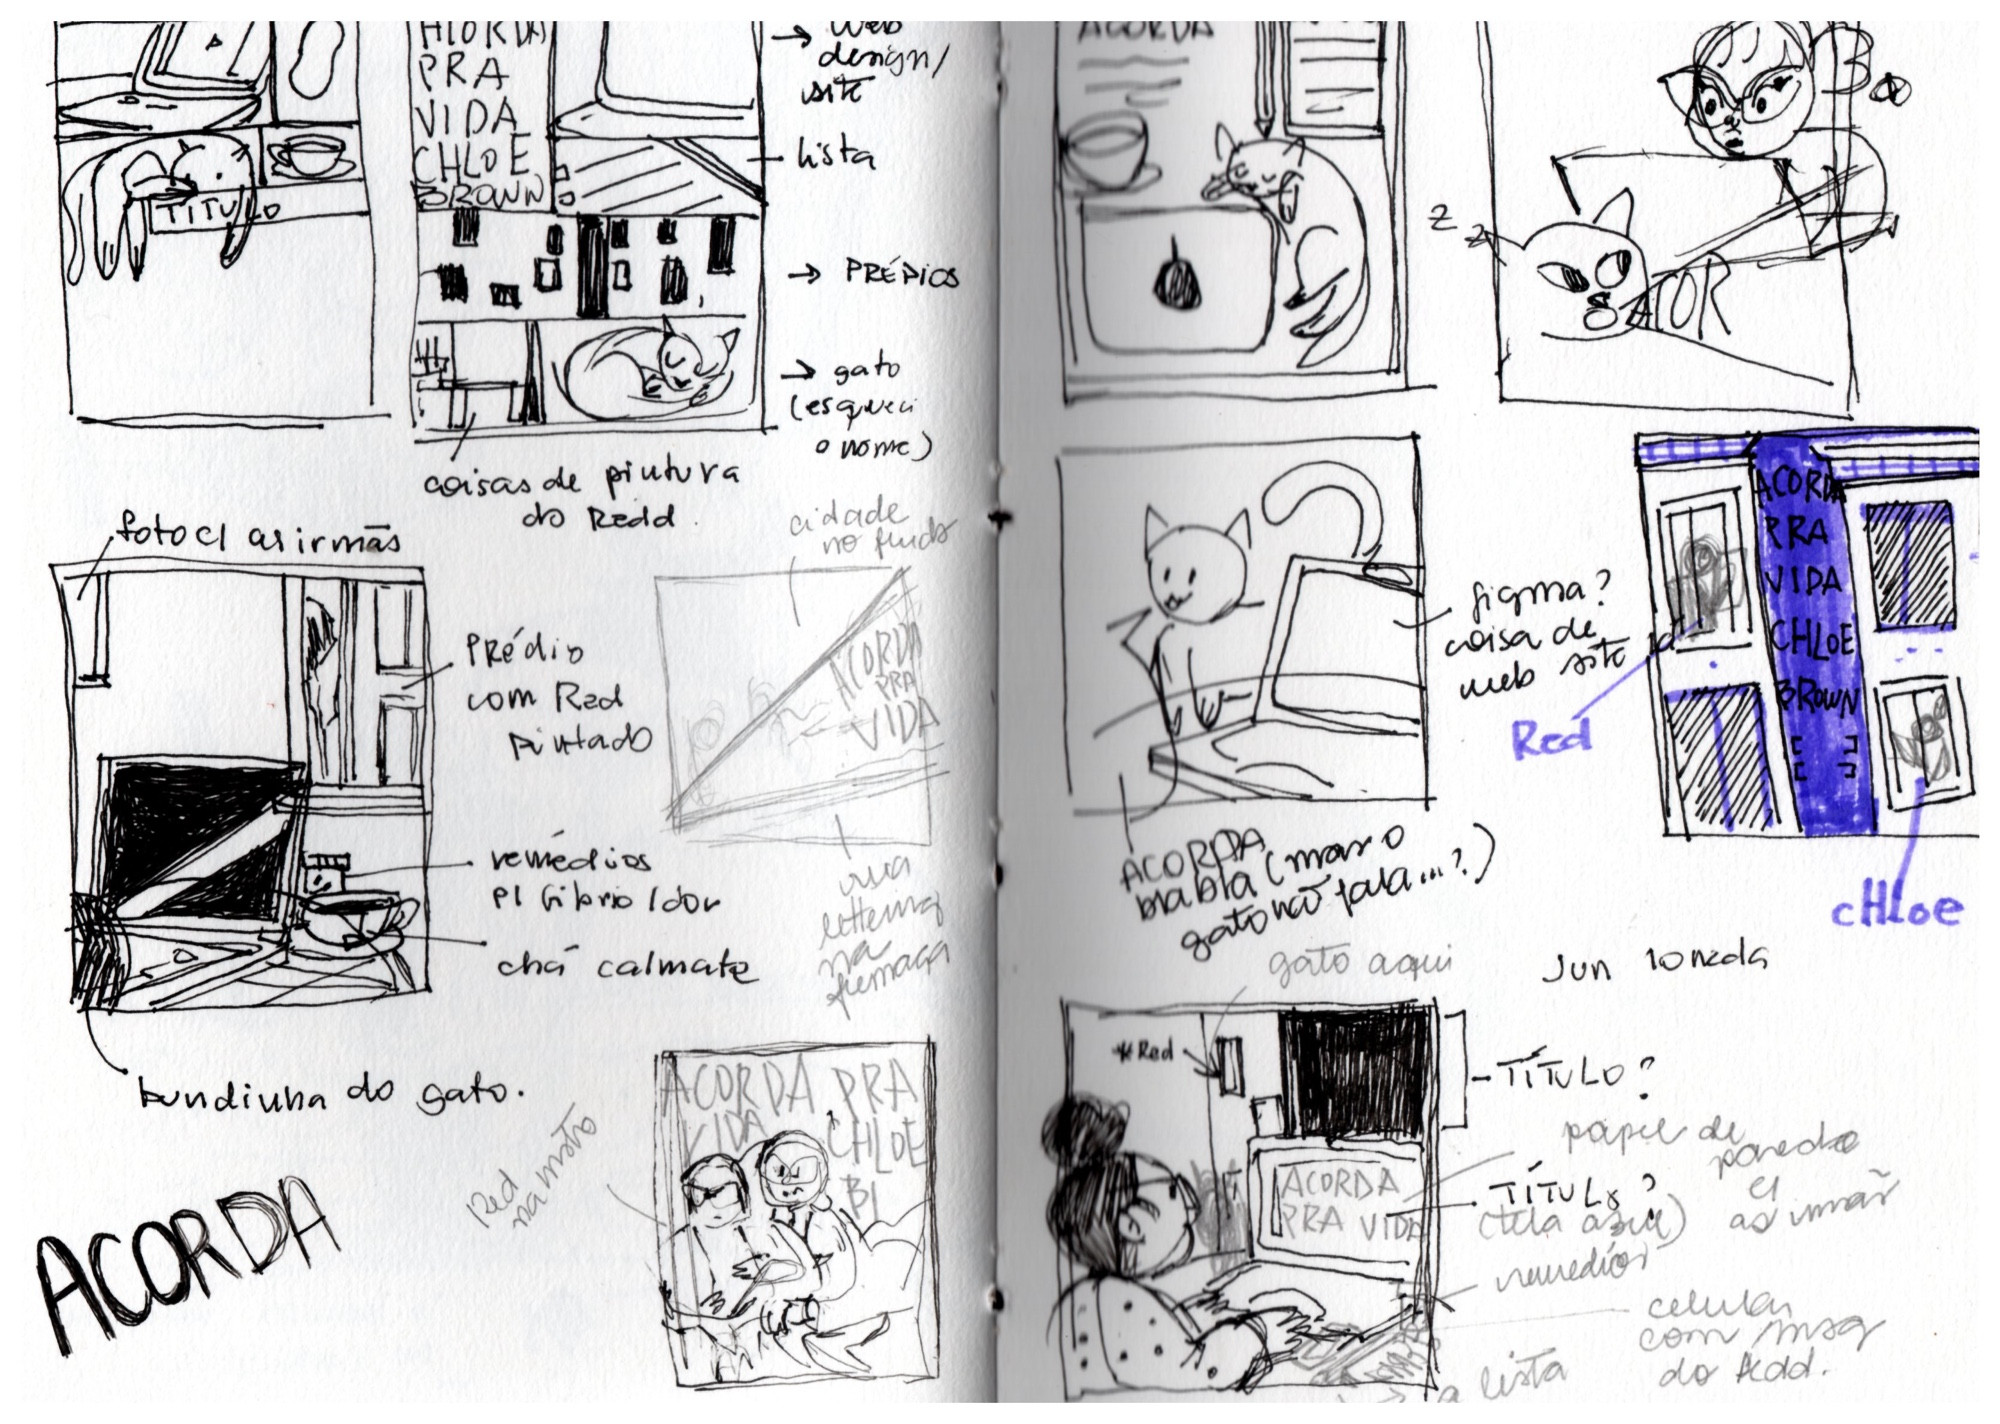 TITULO
ACORDA
PRA
VIDA
CHLOE
BROWN
→ web
design/
site
lista
→ PRÉDIOS
→ gato
(esqueci
o nome)
coisas de pintura
do Redd.
foto c/ as irmãs
Prédio
com Red
pintado
remédios
p/ fibrio/dor
chá calmate
bundinha do gato.
cidade
no fundo
ACORDA
PRA
VIDA
lettering
na
fumaça
ACORDA
Red
na moto
ACORDA PRA
VIDA CHLOE
B
ACORDA
z z
figma?
coisa de
web site
ACORDA
bla bla (mas o
gato não fala...?)
ACORDA
PRA
VIDA
CHLOE
BROWN
Red
cHLoe
gato aqui
Jun Ioneda
*Red
- TÍTULO?
papel de
parede
c/
as irmãs
TÍTULO?
(tela azul)
ACORDA
PRA VIDA
remédios
celular
com msg
do Redd.
a lista